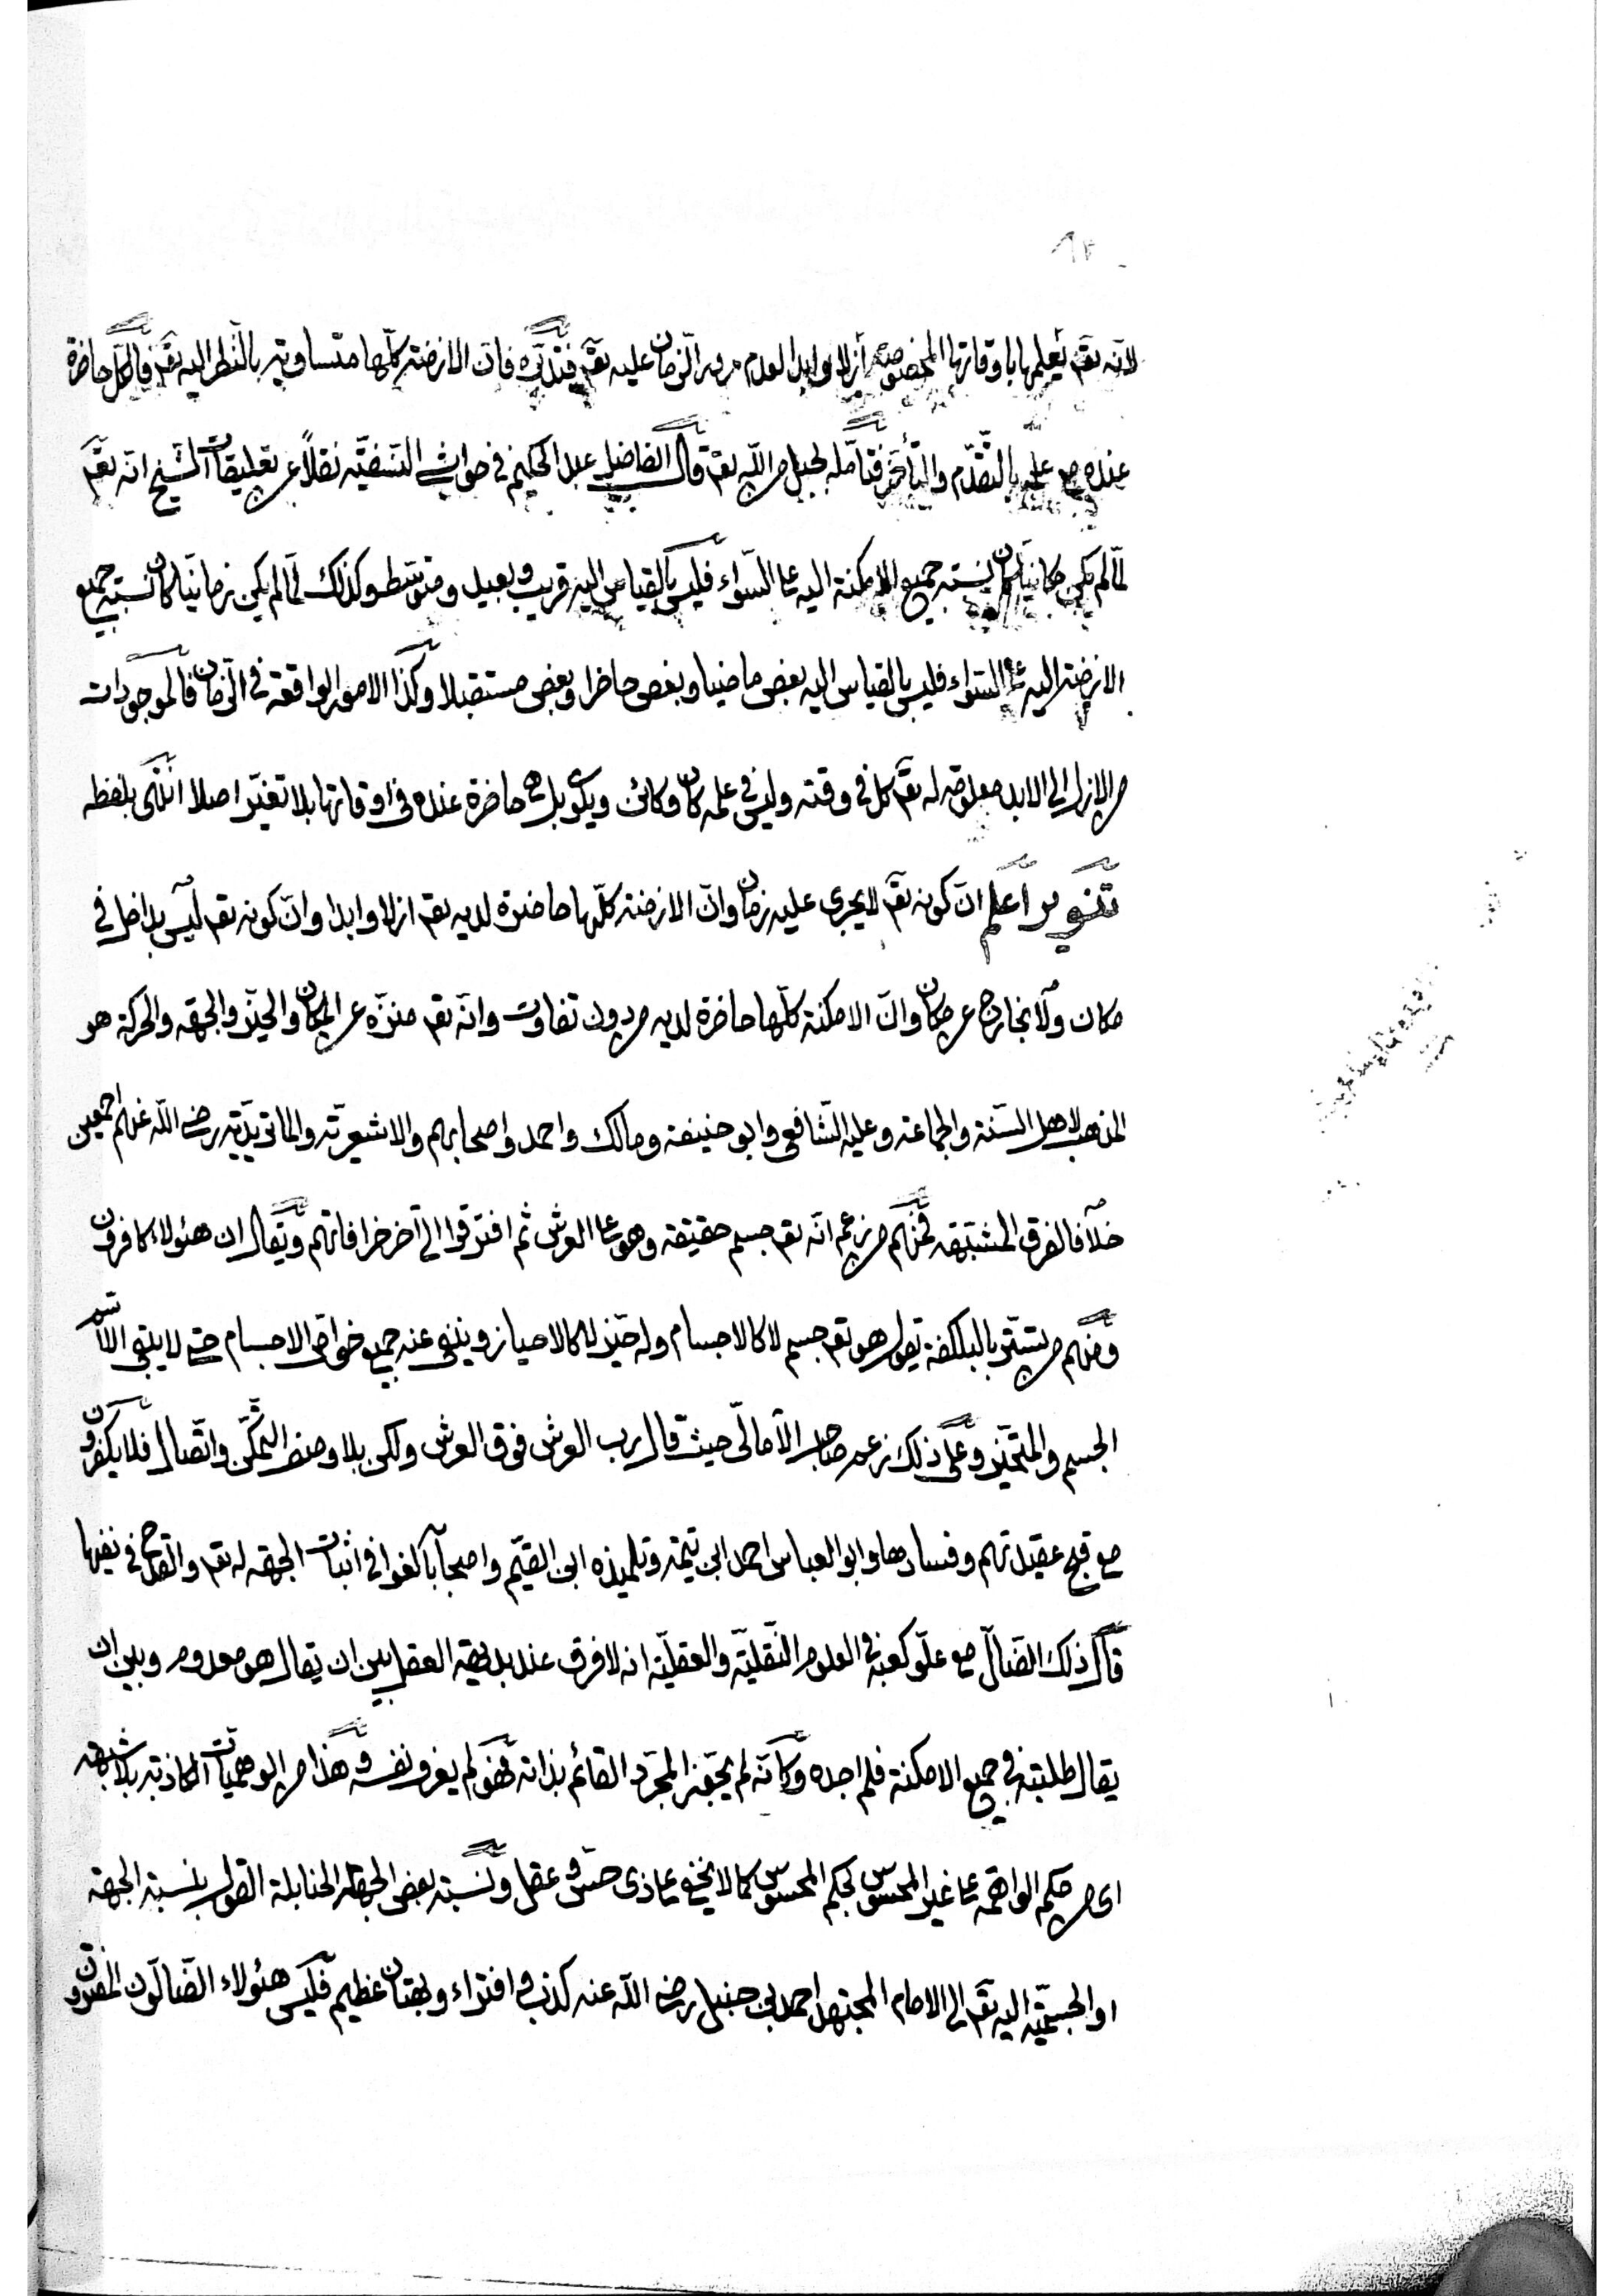 لانه تعم يعلمها باوقاتها المخصوصة أزلا وابدا لعدم مرور الزمان عليه تعم فتدبره فان الازمنة كلها متساوية بالنظر اليه تعم فالكل حاضرة
عنده مع علمه بالتقدم والتأخر فتأمله بحبل من الله تعم قال الفاضل عبد الحكيم في حواشي النسفيه نقلاً عن تعليقات الشيخ انه تعم
لما لم يكن مكانيا كان نسبة جميع الامكنة اليه على السواء فليس بالقياس اليه قريب وبعيد ومتوسط وكذلك لما لم يكن زمانيا كان نسبة جميع
الازمنة اليه على السواء فليس بالقياس اليه بعض ماضيا وبعض حاضرا وبعض مستقبلا وكذا الامور الواقعة في الزمان فالموجودات
من الازل الى الابد معلومة له تعم كل في وقته وليس في علمه كان وكائن ويكون بل هي حاضرة عنده في اوقاتها بلا تغير اصلا انتهى بلفظه
تنوير اعلم ان كونه تعم لا يجرى عليه زمان وان الازمنة كلها حاضرة لديه تعم ازلا وابدا وان كونه تعم ليس بداخل في
مكان ولا بخارج عن مكان وان الامكنة كلها حاضرة لديه من دون تفاوت وانه تعم منزه عن المكان والحيز والجهة والحركة هو
المذهب لاهل السنة والجماعة وعليه الشافعي وابو حنيفة ومالك واحمد واصحابهم والاشعرية والماتريدية رضى الله عنهم اجمعين
خلافا لفرق المشبهة فمنهم من زعم انه تعم جسم حقيقة وهو على العرش ثم افترقوا الى آخر خرافاتهم ويقال ان هئولاء كافرون
ومنهم من يتستر بالبلكفة يقول هو تعم جسم لا كالاجسام وله حيز لا كالاحياز وينفى عنه جميع خواص الاجسام حتى لا يبقى الا اسم
الجسم والمتحيز وعلى ذلك زعم صاحب الامالى حيث قال رب العرش فوق العرش ولكن بلا وصف التمكن واتصال فلا يكفرون
مع قبح عقيدتهم وفسادها وابو العباس احمد ابن تيمة وتلميذه ابن القيم واصحابه بالغوا في اثبات الجهة له تعم والقدح في نفيها
قال ذلك الضال مع علو كعبه في العلوم النقلية والعقلية انه لا فرق عند بديهة العقل بين ان يقال هو معدوم وبين ان
يقال طلبته في جميع الامكنة فلم اجده وكأنه لم يحققه المجرد القائم بذاته فهو لم يعرف نفسه وهذا من الوهميات الكاذبة بلا شبهة
اى من حكم الواهمة على غير المحسوس بحكم المحسوس كما لا يخفى على ذى حس وعقل ونسبة بعض الجهلة الحنابلة القول بنسبة الجهة
او الجسمية اليه تعم الى الامام المجتهد احمد بن حنبل رضى الله عنه كذب وافتراء وبهتان عظيم فليس هئولاء الضالون المفترون